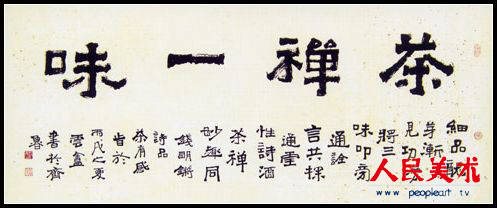 茶禪一味
細品
芽漸
見功
將三
味叩商
通詮
言共
通靈
性詩酒
茶禅
妙趣同
錢明鏘
詩品
茶有感
旨於
丙戌之夏
雲鑫
書於齊
魯
人民美术
www.peopleart.tv